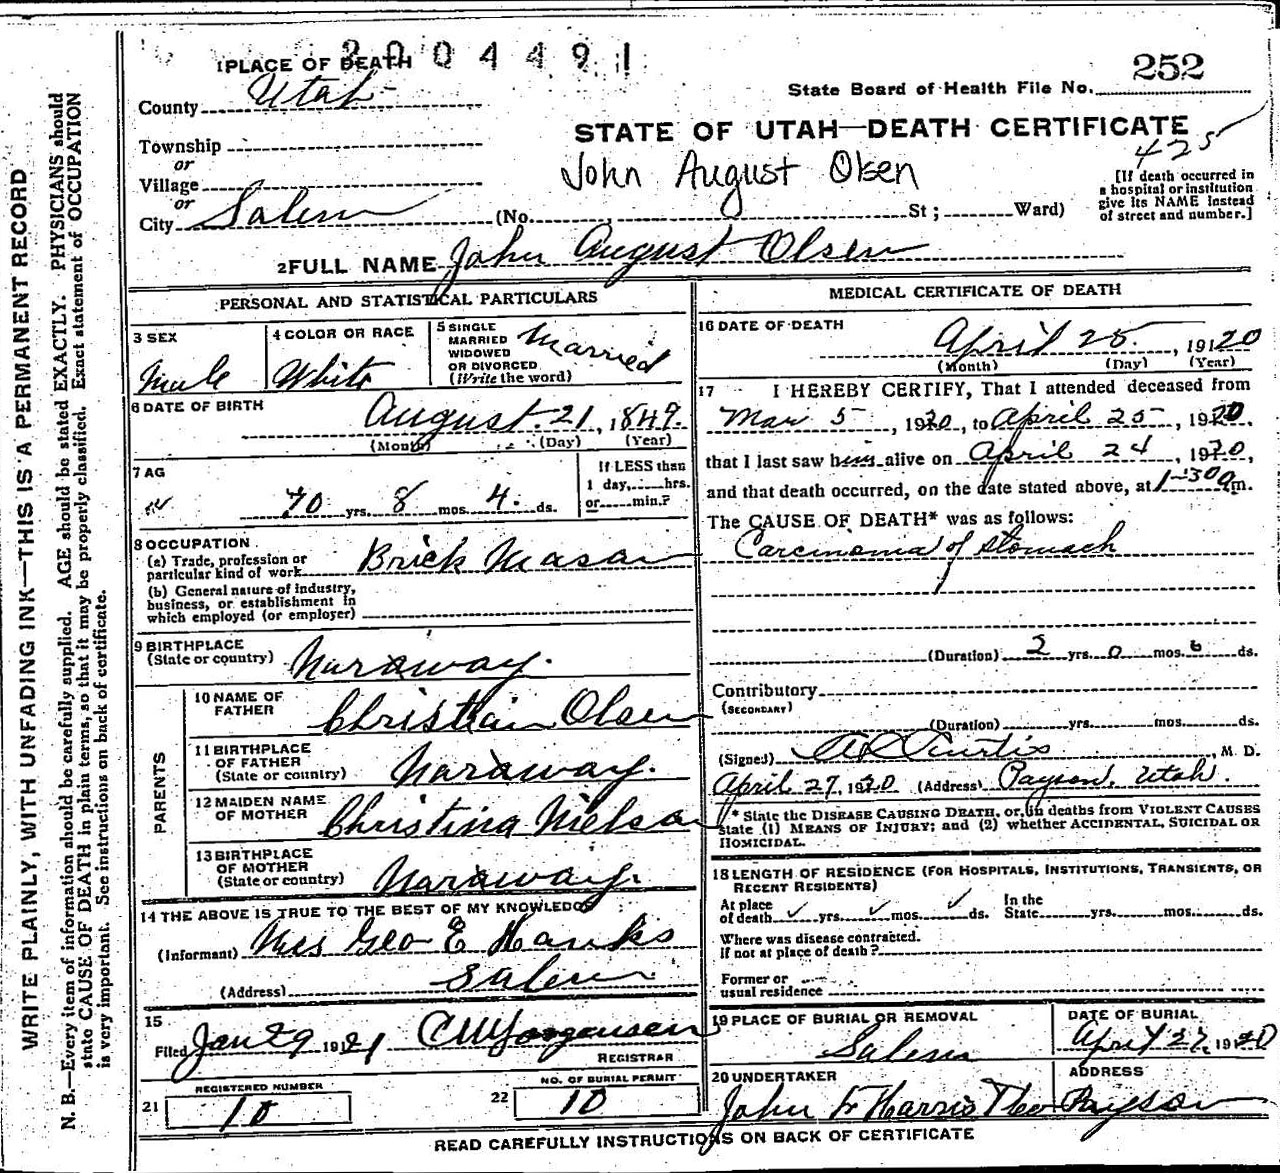 2004491
1 PLACE OF DEATH
252
State Board of Health File No.
County Utah
STATE OF UTAH—DEATH CERTIFICATE
425
Township
or
Village
or
City Salem
John August Olsen
(No. St; Ward)
[If death occurred in
a hospital or institution
give its NAME instead
of street and number.]
2 FULL NAME John August Olsen
PERSONAL AND STATISTICAL PARTICULARS
3 SEX
Male
4 COLOR OR RACE
White
5 SINGLE
MARRIED
WIDOWED
OR DIVORCED
(Write the word)
Married
6 DATE OF BIRTH
August 21, 1849.
(Month) (Day) (Year)
7 AG
70 yrs. 8 mos. 4 ds.
If LESS than
1 day, hrs.
or min.?
8 OCCUPATION
(a) Trade, profession or
particular kind of work Brick Mason
(b) General nature of industry,
business, or establishment in
which employed (or employer)
9 BIRTHPLACE
(State or country) Naraway.
PARENTS
10 NAME OF
FATHER Christian Olsen
11 BIRTHPLACE
OF FATHER
(State or country) Naraway.
12 MAIDEN NAME
OF MOTHER Christina Nielson
13 BIRTHPLACE
OF MOTHER
(State or country) Naraway.
14 THE ABOVE IS TRUE TO THE BEST OF MY KNOWLEDG
(Informant) Mrs Geo E Hanks
(Address) Salem
15
Filed Jan 29 1921 C W Jorgensen
REGISTRAR
REGISTERED NUMBER
21 10
NO. OF BURIAL PERMIT
22 10
MEDICAL CERTIFICATE OF DEATH
16 DATE OF DEATH
April 25, 19120
(Month) (Day) (Year)
17 I HEREBY CERTIFY, That I attended deceased from
Mar 5, 1920, to April 25, 1920.
that I last saw him alive on April 24, 1920,
and that death occurred, on the date stated above, at 1-30 a m.
The CAUSE OF DEATH* was as follows:
Carcinoma of stomach
(Duration) 2 yrs. 0 mos. 6 ds.
Contributory
(SECONDARY)
(Duration) yrs. mos. ds.
(Signed) Curtis, M. D.
April 27, 1920 (Address) Payson, Utah.
* State the DISEASE CAUSING DEATH, or, in deaths from VIOLENT CAUSES
state (1) MEANS OF INJURY; and (2) whether ACCIDENTAL, SUICIDAL OR
HOMICIDAL.
18 LENGTH OF RESIDENCE (FOR HOSPITALS, INSTITUTIONS, TRANSIENTS, OR
RECENT RESIDENTS)
At place
of death yrs. mos. ds.
In the
State yrs. mos. ds.
Where was disease contracted.
If not at place of death?
Former or
usual residence
19 PLACE OF BURIAL OR REMOVAL
Salem
DATE OF BURIAL
April 27, 1920
20 UNDERTAKER
John F Harris
ADDRESS
Payson
READ CAREFULLY INSTRUCTIONS ON BACK OF CERTIFICATE
WRITE PLAINLY, WITH UNFADING INK—THIS IS A PERMANENT RECORD
N. B.—Every item of information should be carefully supplied. AGE should be stated EXACTLY. PHYSICIANS should
state CAUSE OF DEATH in plain terms, so that it may be properly classified. Exact statement of OCCUPATION
is very important. See instructions on back of certificate.